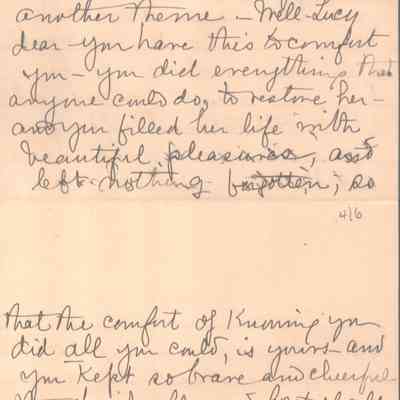 another theme - Well - Lucy
dear - you have this to comfort
you - you did everything that
anyone could do, to restore her -
and you filled her life with
beautiful pleasures, and
left nothing forgotten; so
4/6
that the comfort of Knowing you
did all you could, is yours - and
you Kept so brave and cheerful